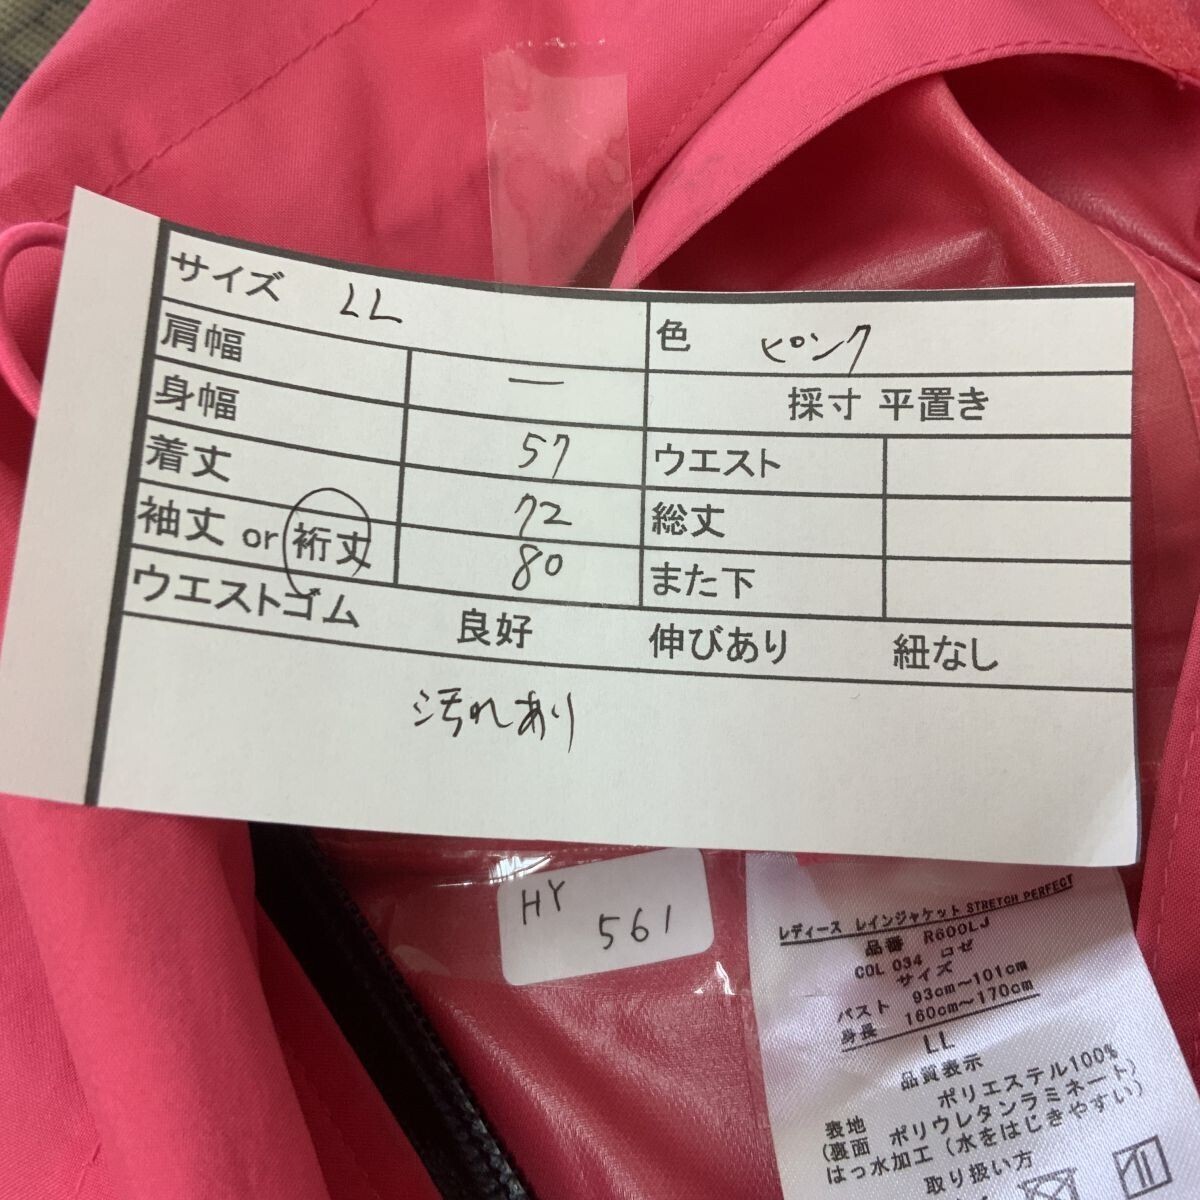 サイズ LL
色 ピンク
肩幅 —
採寸 平置き
身幅 57
ウエスト
着丈 72
総丈
袖丈 or 裄丈 80
また下
ウエストゴム 良好 伸びあり 紐なし
汚れあり
HY
561
レディース レインジャケット STRETCH PERFECT
品番 R600LJ
COL 034 ロゼ
サイズ
バスト 93cm〜101cm
身長 160cm〜170cm
LL
品質表示
表地 ポリエステル100%
(裏面 ポリウレタンラミネート)
はっ水加工 (水をはじきやすい)
取り扱い方